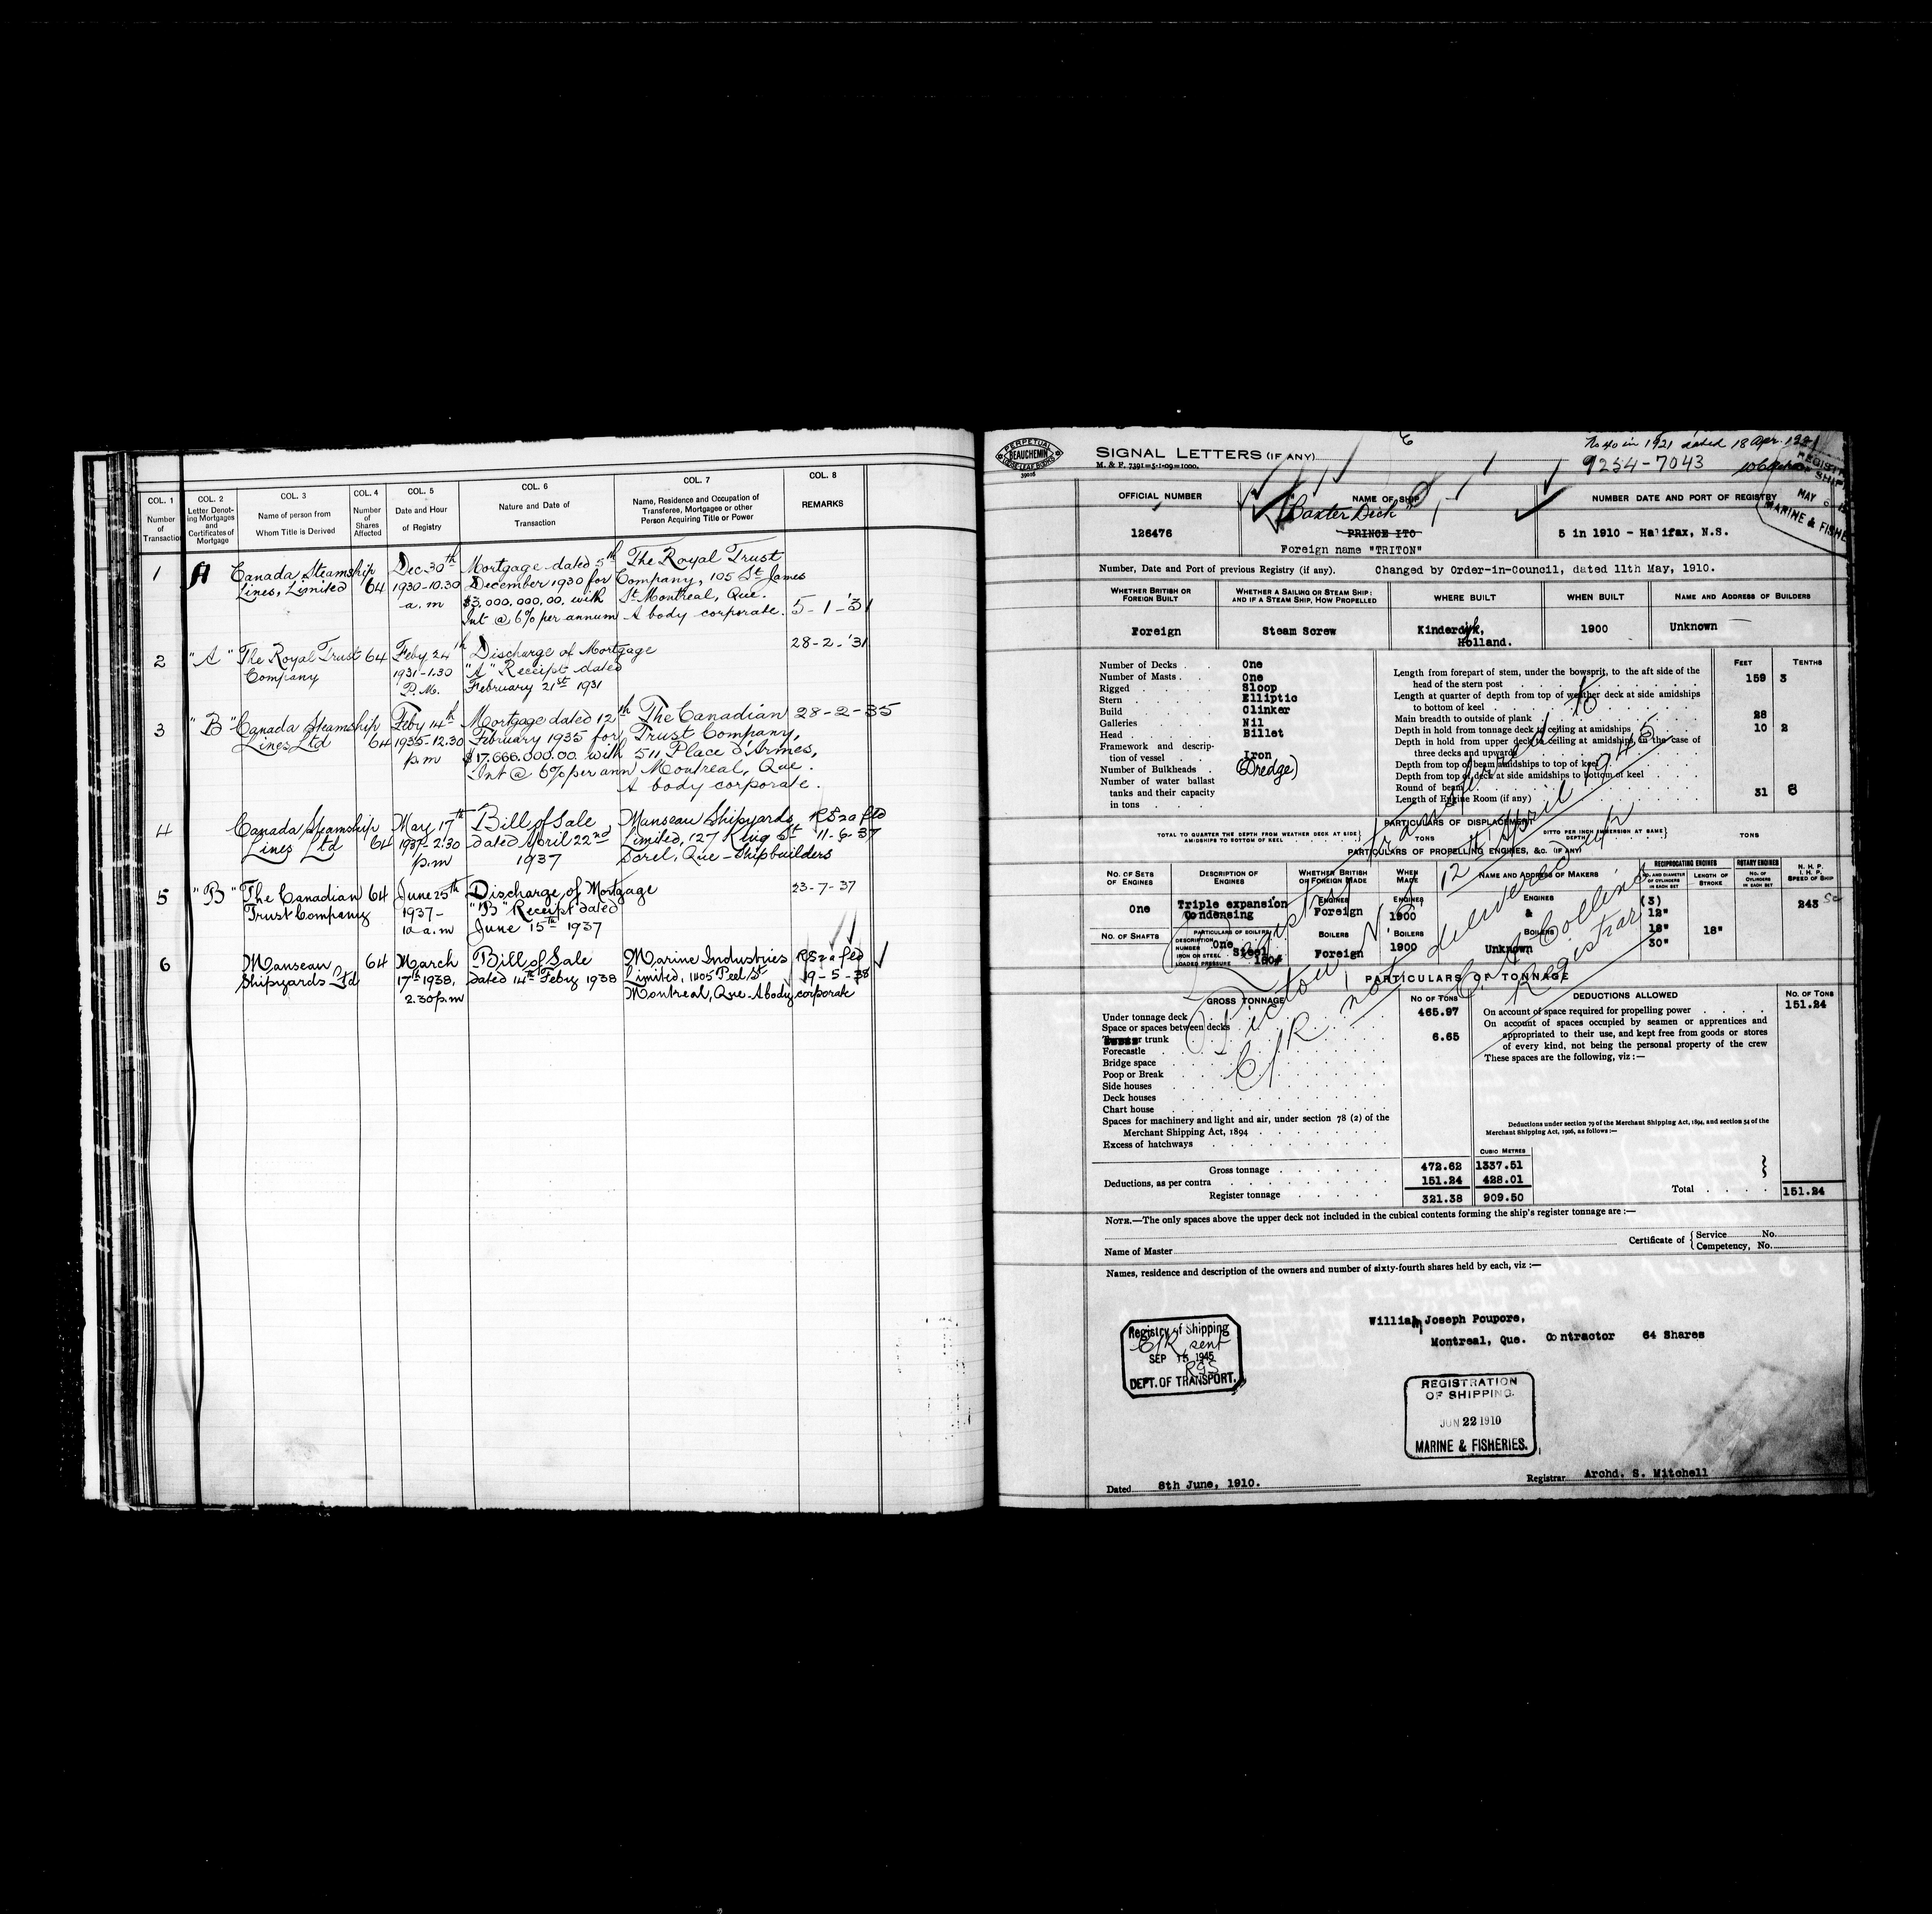 COL. 1 COL. 2 COL. 3 COL. 4 COL. 5 COL. 6 COL. 7 COL. 8
Number of Transaction
Letter Denoting Mortgages and Certificates of Mortgage
Name of person from Whom Title is Derived
Number of Shares Affected
Date and Hour of Registry
Nature and Date of Transaction
Name, Residence and Occupation of Transferee, Mortgagee or other Person Acquiring Title or Power
REMARKS
1 A Canada Steamship Lines, Limited 64 Dec 30th 1930-10.30 a.m Mortgage dated 5th December 1930 for $3,000,000.00 with Int @ 6% per annum The Royal Trust Company, 105 St James St Montreal, Que. A body corporate. 5-1-'31
2 "A" The Royal Trust Company 64 Feby 24th 1931-1.30 P.M. Discharge of Mortgage "A" Receipt dated February 21st 1931 28-2-'31
3 "B" Canada Steamship Lines Ltd 64 Feby 14th 1935-12.30 p.m Mortgage dated 12th February 1935 for $17,666,000.00 with Int @ 6% per ann The Canadian Trust Company, 511 Place d'Armes, Montreal, Que. A body corporate. 28-2-35
4 Canada Steamship Lines Ltd 64 May 17th 1937-2:30 p.m Bill of Sale dated April 22nd 1937 Manseau Shipyards Limited, 127 King St Sorel, Que - Shipbuilders RS20 fld 11-6-37
5 "B" The Canadian Trust Company 64 June 25th 1937- 10 a.m Discharge of Mortgage "B" Receipt dated June 15th 1937 23-7-37
6 Manseau Shipyards Ltd 64 March 17th 1938, 2.30 p.m Bill of Sale dated 14th Feby 1938 Marine Industries Limited, 1405 Peel St Montreal, Que. A body corporate RS20 fld 19-5-38
PERPETUAL BEAUCHEMIN LOOSE LEAF BOOKS
SIGNAL LETTERS (IF ANY)
M. & F. 7391=5-1-09=1000.
No 40 in 1921 dated 18 Apr. 1921
9254-7043
MAY
MARINE & FISHE
OFFICIAL NUMBER NAME OF SHIP NUMBER DATE AND PORT OF REGISTRY
"Baxter Dick"
126476 PRINCE ITO 5 in 1910 - Halifax, N.S.
Foreign name "TRITON"
Number, Date and Port of previous Registry (if any). Changed by Order-in-Council, dated 11th May, 1910.
WHETHER BRITISH OR FOREIGN BUILT
WHETHER A SAILING OR STEAM SHIP; AND IF A STEAM SHIP, HOW PROPELLED
WHERE BUILT WHEN BUILT NAME AND ADDRESS OF BUILDERS
Foreign Steam Screw Kinderdyk, Holland. 1900 Unknown
Number of Decks One
Number of Masts One
Rigged Sloop
Stern Elliptic
Build Clinker
Galleries Nil
Head Billet
Framework and description of vessel Iron
Number of Bulkheads (Dredge)
Number of water ballast tanks and their capacity in tons
FEET TENTHS
Length from forepart of stem, under the bowsprit, to the aft side of the head of the stern post 159 3
Length at quarter of depth from top of weather deck at side amidships to bottom of keel
Main breadth to outside of plank 28
Depth in hold from tonnage deck to ceiling at amidships 10 2
Depth in hold from upper deck to ceiling at amidships, in the case of three decks and upwards
Depth from top of beam amidships to top of keel
Depth from top of deck at side amidships to bottom of keel
Round of beam
Length of Engine Room (if any) 31 8
PARTICULARS OF DISPLACEMENT
TOTAL TO QUARTER THE DEPTH FROM WEATHER DECK AT SIDE AMIDSHIPS TO BOTTOM OF KEEL TONS DITTO PER INCH IMMERSION AT SAME DEPTH TONS
PARTICULARS OF PROPELLING ENGINES, &C. (IF ANY)
NO. OF SETS OF ENGINES DESCRIPTION OF ENGINES WHETHER BRITISH OR FOREIGN MADE WHEN MADE NAME AND ADDRESS OF MAKERS
RECIPROCATING ENGINES ROTARY ENGINES
NO. AND DIAMETER OF CYLINDERS IN EACH SET LENGTH OF STROKE NO. OF CYLINDERS IN EACH SET
N. H. P. I. H. P. SPEED OF SHIP
One Triple expansion Condensing ENGINES Foreign ENGINES 1900 ENGINES & (3) 12" 18" 30" 18" 243
NO. OF SHAFTS PARTICULARS OF BOILERS BOILERS BOILERS BOILERS
DESCRIPTION
NUMBER One
IRON OR STEEL Steel
LOADED PRESSURE 180#
Foreign 1900 Unknown
Registry transferred to
Pictou, N.S. 12th April 1945
C/R not delivered up
Collins
Registrar
PARTICULARS OF TONNAGE
GROSS TONNAGE NO OF TONS DEDUCTIONS ALLOWED NO. OF TONS
Under tonnage deck 465.97
Space or spaces between decks
or trunk 6.65
Forecastle
Bridge space
Poop or Break
Side houses
Deck houses
Chart house
Spaces for machinery and light and air, under section 78 (2) of the Merchant Shipping Act, 1894
Excess of hatchways
On account of space required for propelling power 151.24
On account of spaces occupied by seamen or apprentices and appropriated to their use, and kept free from goods or stores of every kind, not being the personal property of the crew
These spaces are the following, viz :—
Deductions under section 79 of the Merchant Shipping Act, 1894, and section 54 of the Merchant Shipping Act, 1906, as follows :—
CUBIC METRES
Gross tonnage 472.62 1337.51
Deductions, as per contra 151.24 428.01
Register tonnage 321.38 909.50
Total 151.24
NOTE.—The only spaces above the upper deck not included in the cubical contents forming the ship's register tonnage are :—
Name of Master Certificate of Service No.
Competency, No.
Names, residence and description of the owners and number of sixty-fourth shares held by each, viz :—
William Joseph Poupore,
Montreal, Que. Contractor 64 Shares
Registry of Shipping
C/R sent
SEP 15 1945
RGS
DEPT. OF TRANSPORT.
REGISTRATION
OF SHIPPING.
JUN 22 1910
MARINE & FISHERIES.
Dated 8th June, 1910. Registrar Archd. S. Mitchell